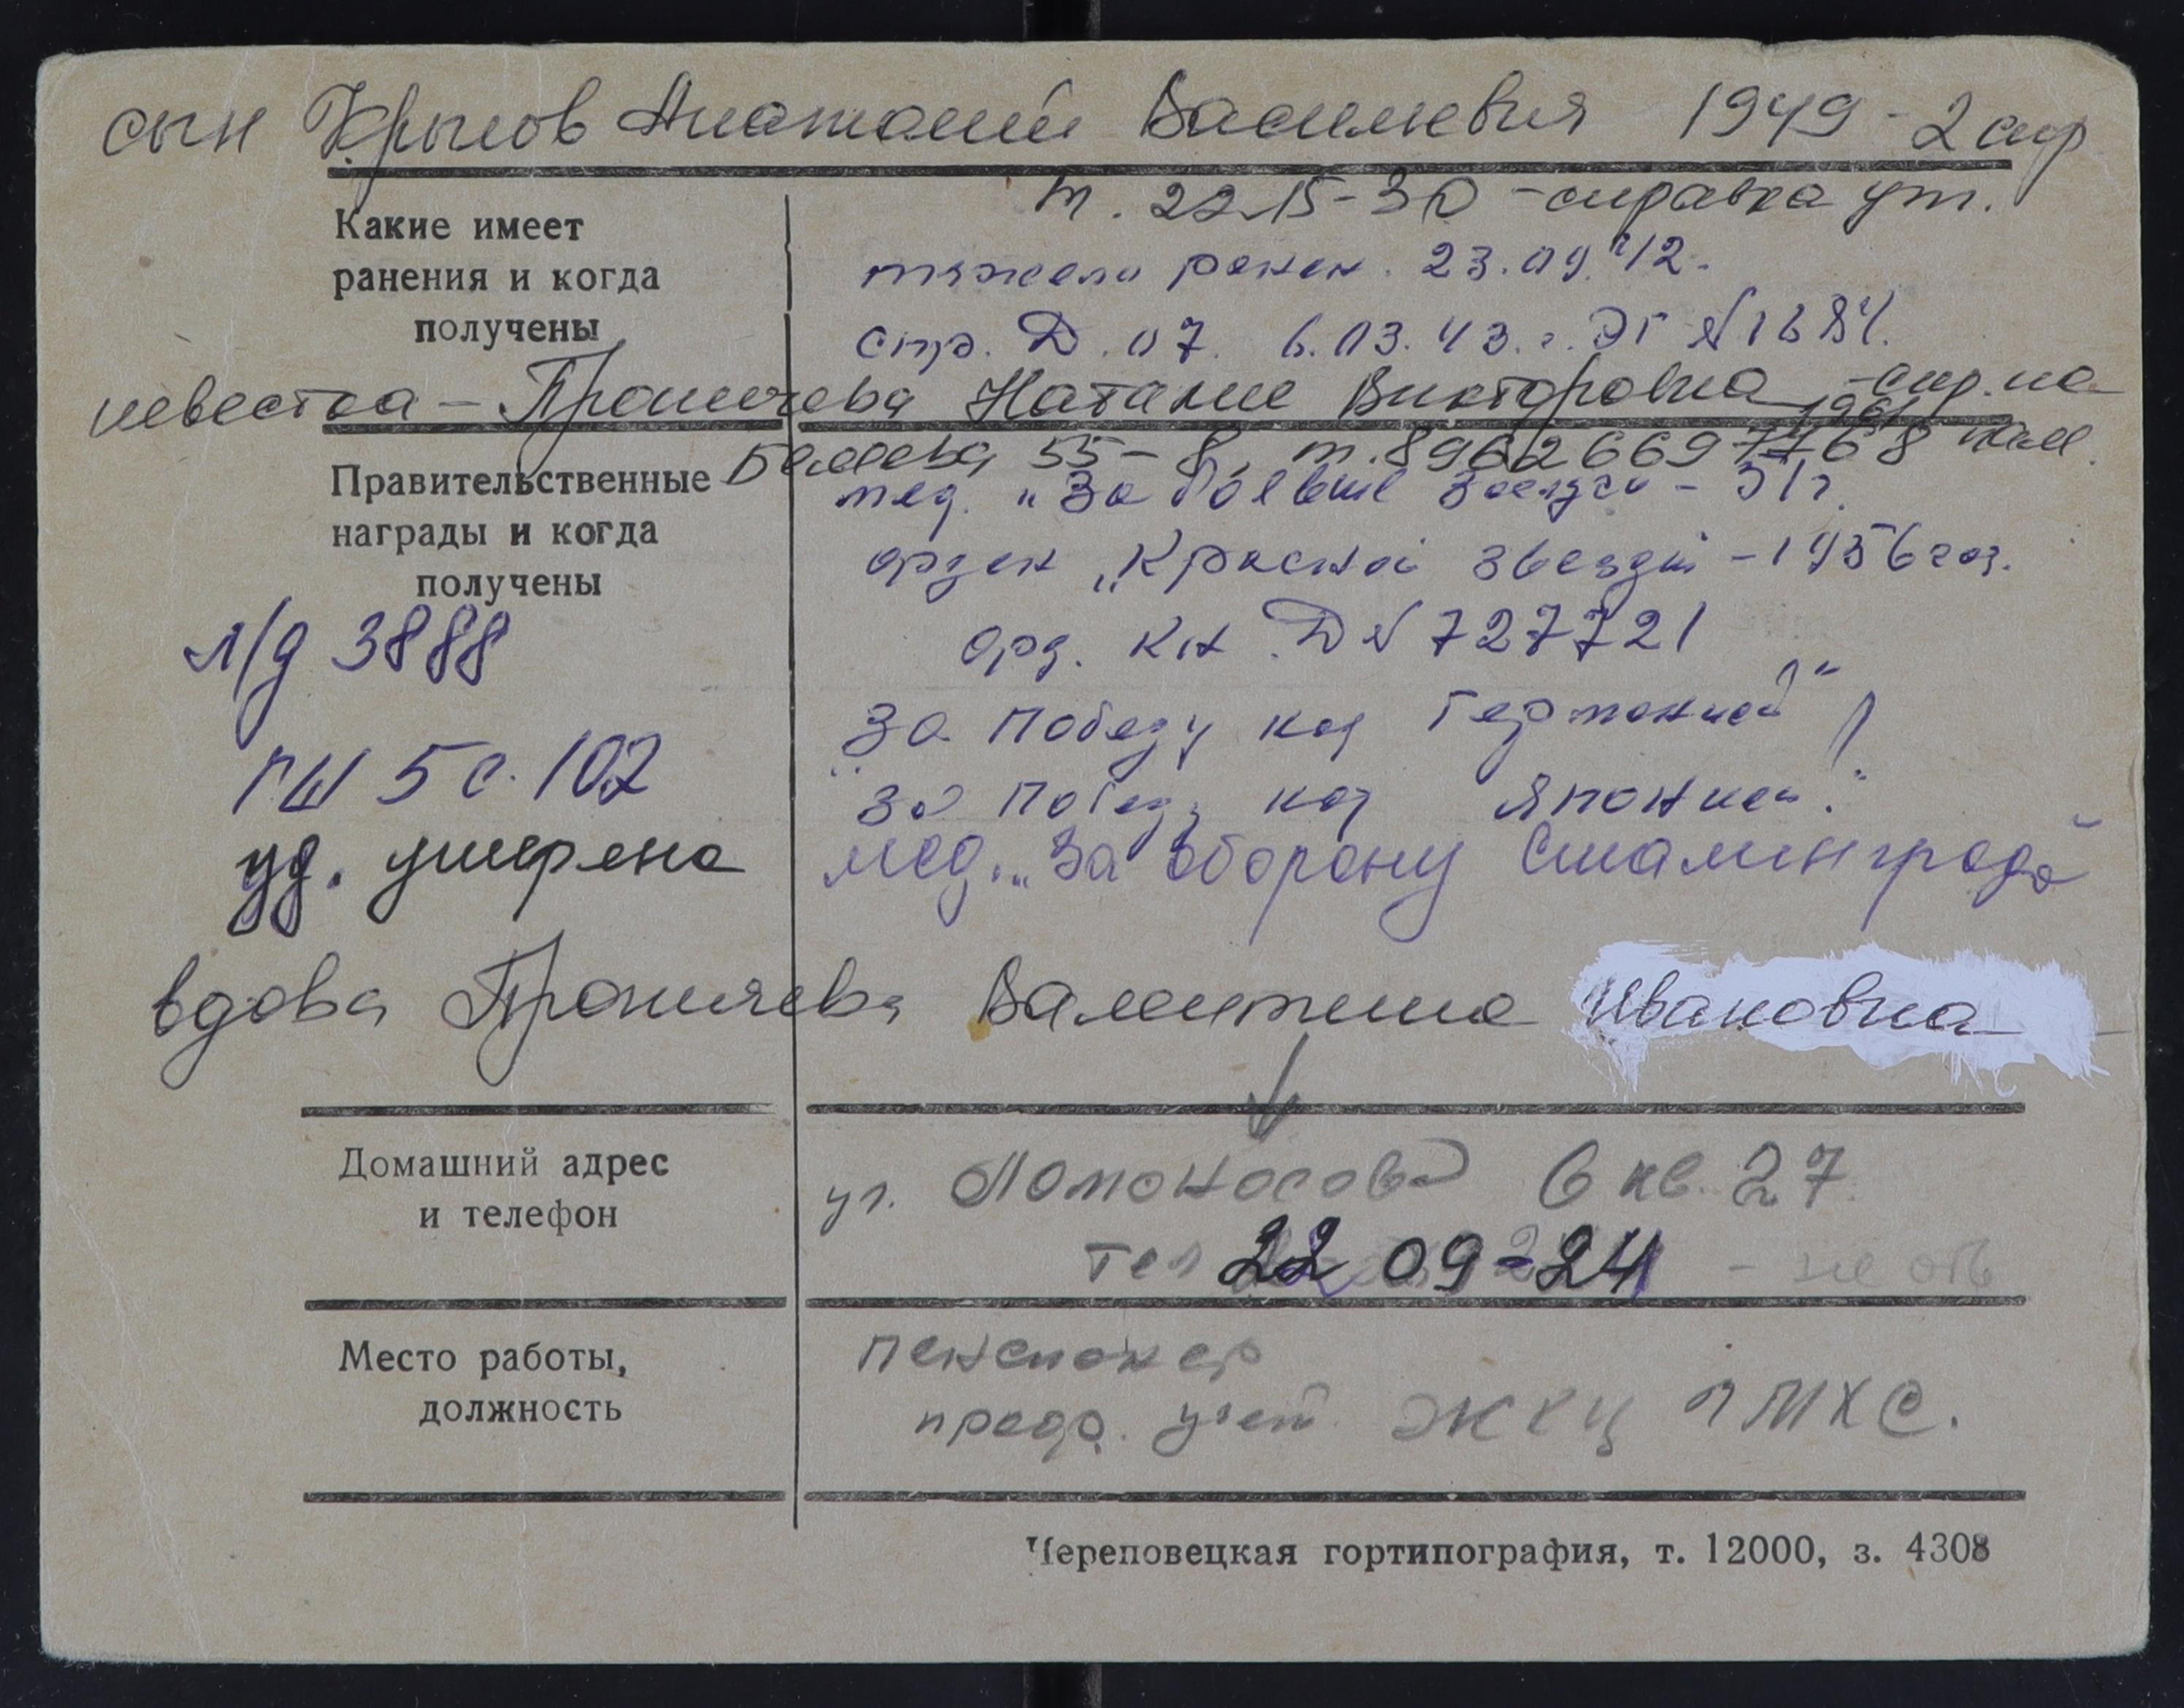 сын Крылов Анатолий Васильевич 1949 - 2 спр
т. 22-15-30 - справка ут.
Какие имеет
ранения и когда
получены
тяжело ранен. 23.09.42.
спр. Д. 07. 6.03.43. г. ЭГ № 1684.
невестка - Проничева Наталие Викторовна - спр. на
Беляева 55-8, т. 89626697768
Правительственные
награды и когда
получены
мед. "За боевые заслуги - 51г.
орден "Красной звезды - 1956 год.
орд. кн. Д № 727721
л/д 3888
"За победу над Германией"
ГШ 5 с. 102
"За победу над Японией."
уд. умерена
мед. "За оборону Сталинграда"
вдова Проничева Валентина Ивановна
Домашний адрес
и телефон
ул. Ломоносова 6 кв. 27
тел 22 09-24 - не отв
Место работы,
должность
пенсионер
предо. учет. ЖКЦ ПМХС.
Череповецкая гортипография, т. 12000, з. 4308